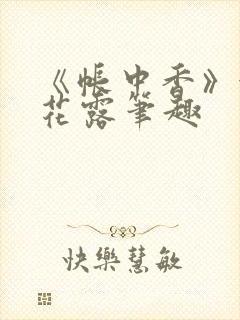 《帳中香》
花露筆趣
快樂慧敏